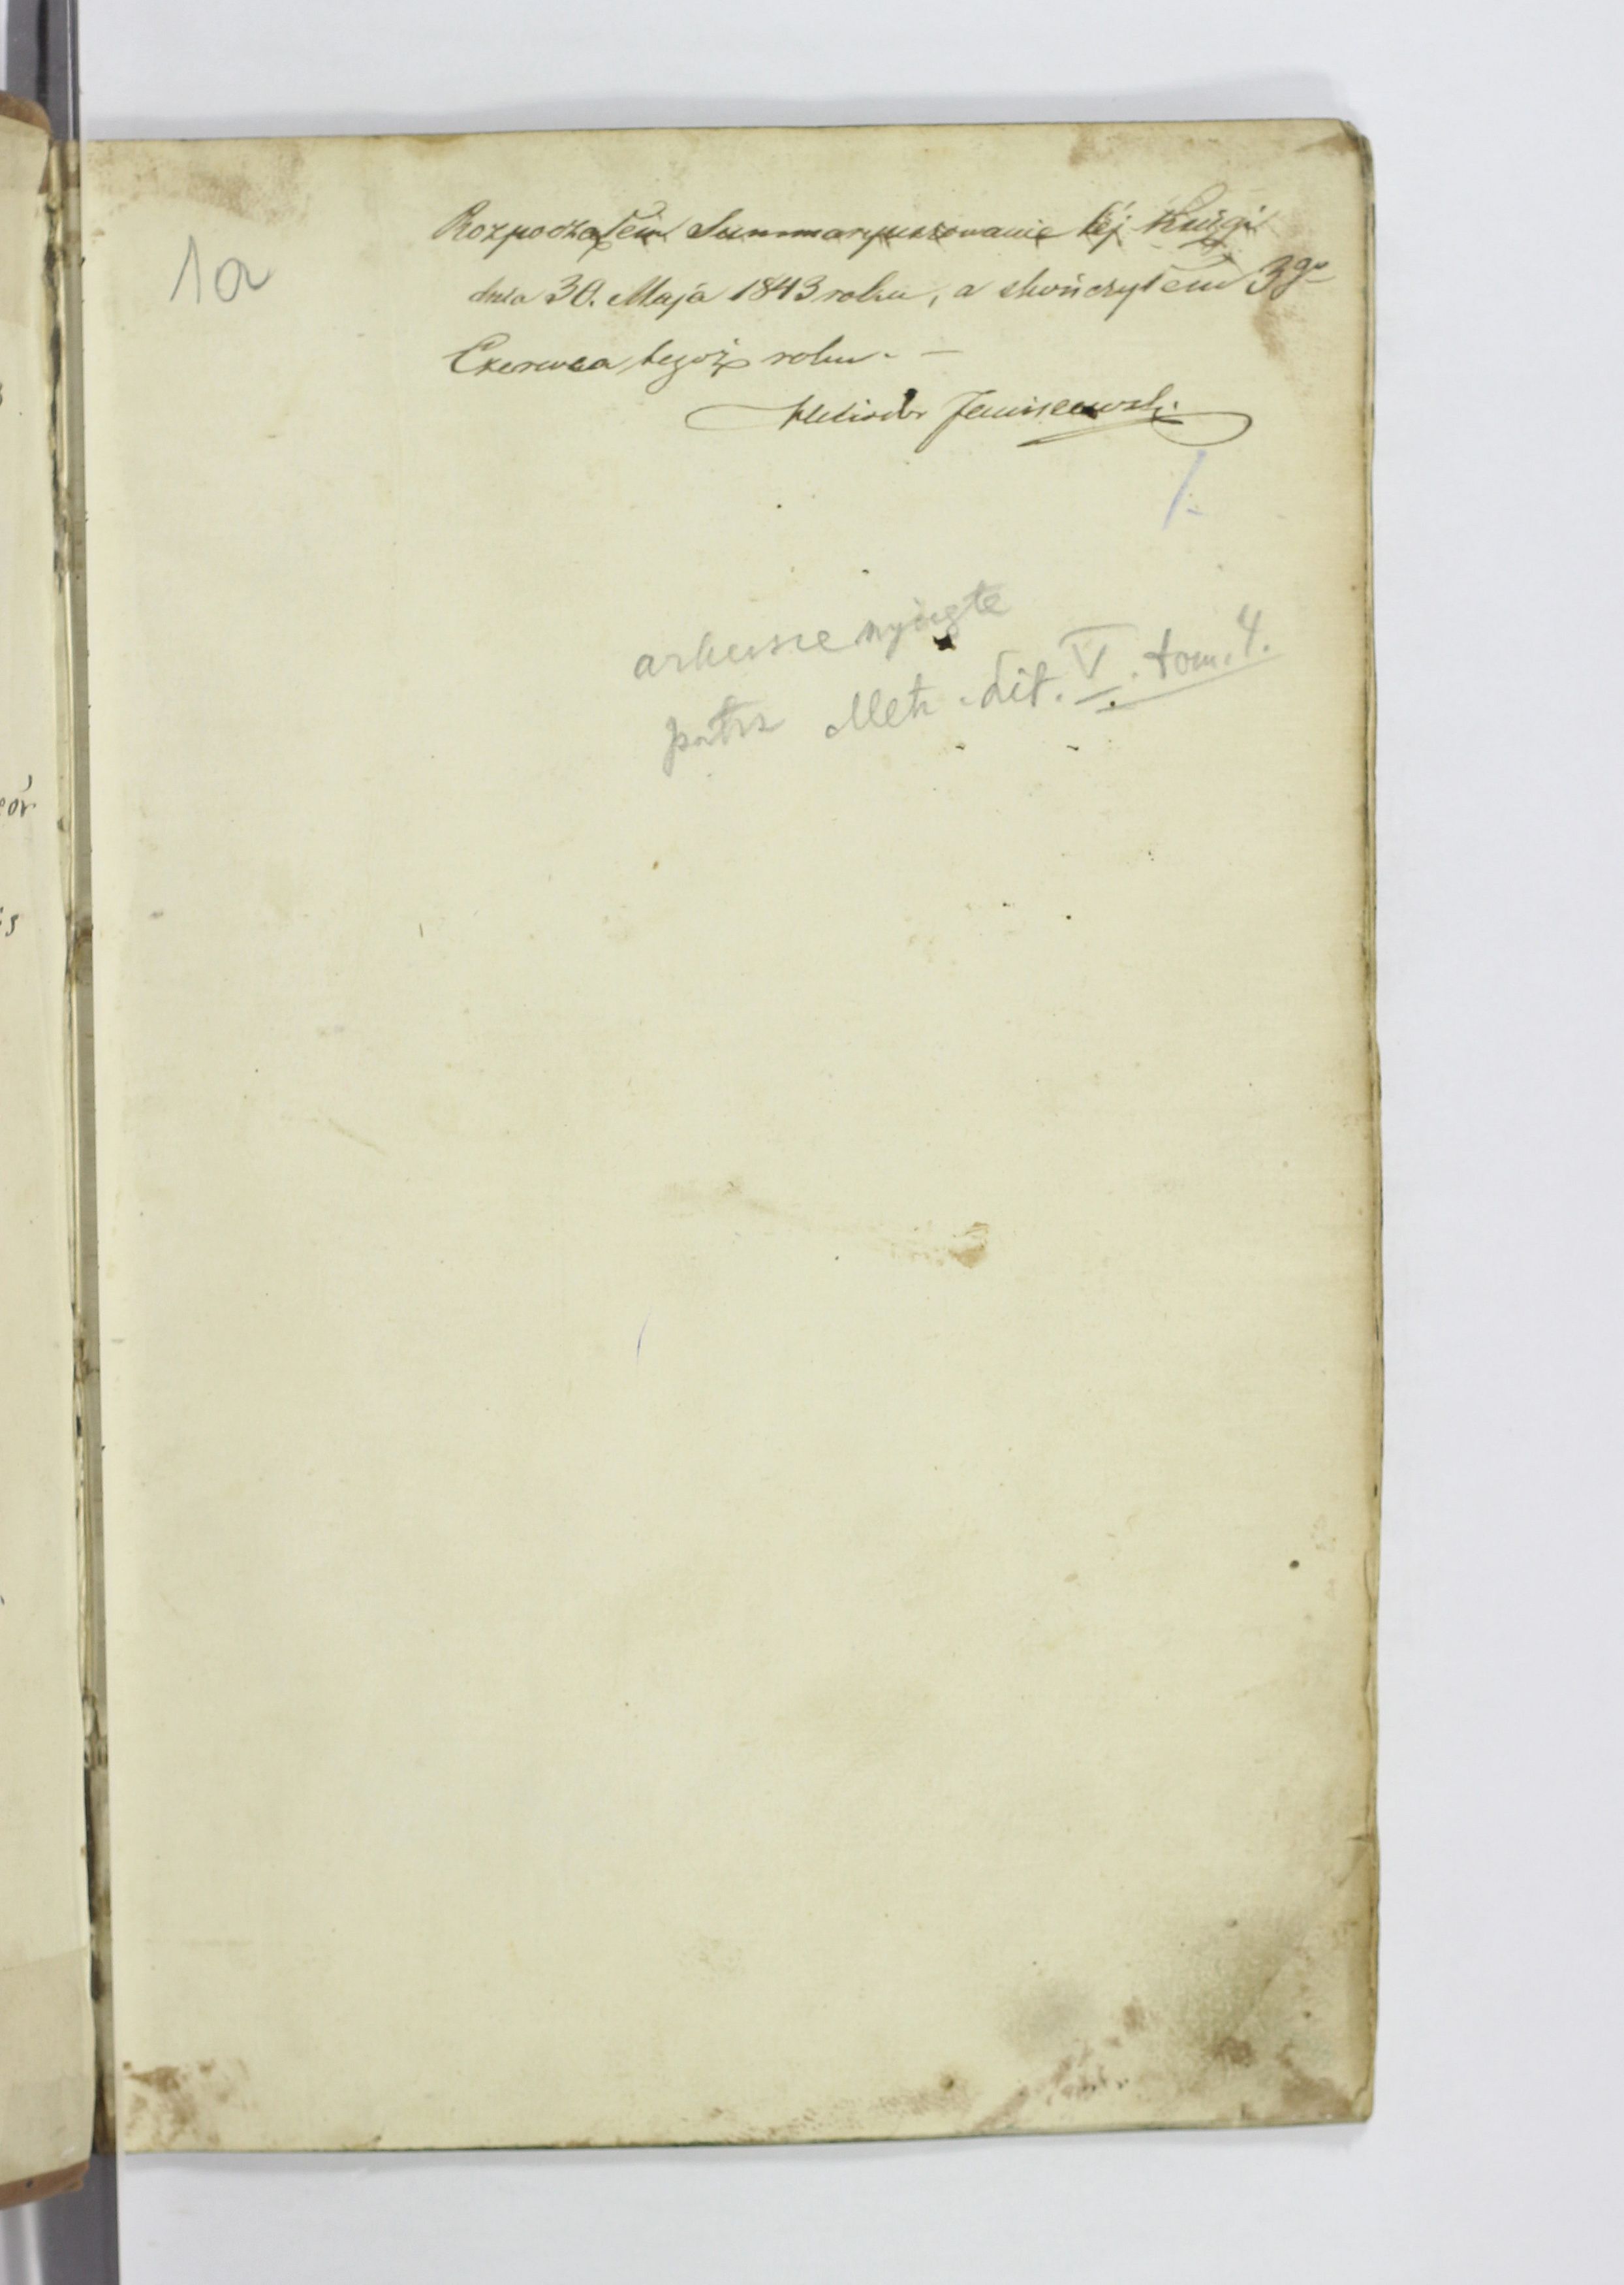 1a
Rozpocząłem Summaryuszowanie téj Księgi
dnia 30. Maja 1843 roku, a skończyłem 3go
Czerwca tegoż roku. —
Janiszewski
1.
arkusze wyięte
patrz Metr. Lit. V. tom. 4.